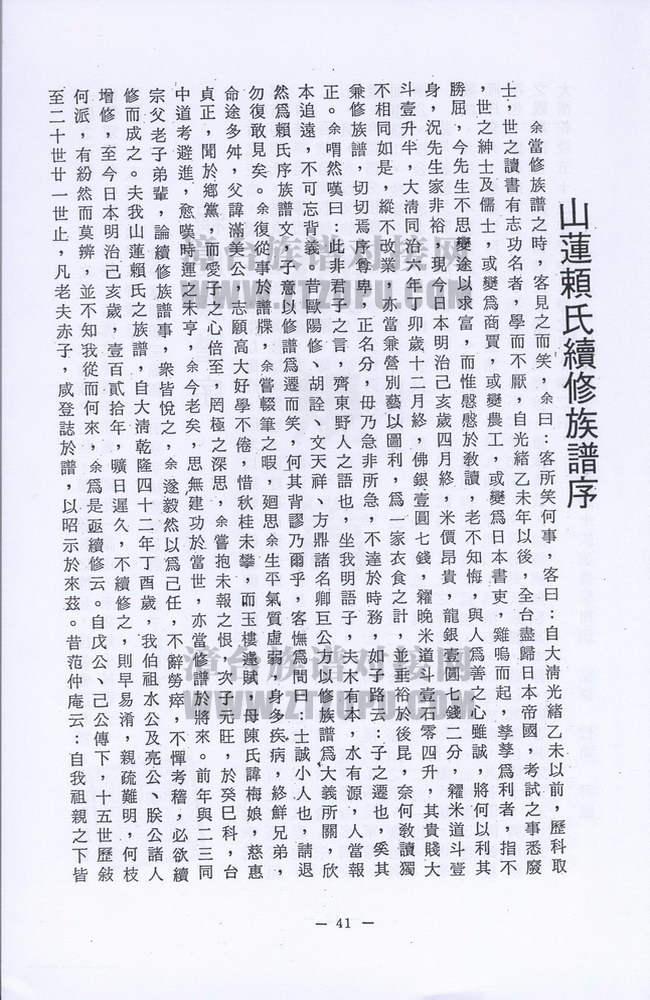 山蓮賴氏續修族譜序
余當修族譜之時，客見之而笑，余曰：客所笑何事，客曰：自大清光緒乙未以前，歷科取
士，世之讀書有志功名者，學而不厭，自光緒乙未年以後，全台盡歸日本帝國，考試之事悉廢
，世之紳士及儒士，或變為商賈，或變農工，或變為日本書吏，雞鳴而起，孳孳為利者，指不
勝屈，今先生不思變途以求富，而惟慇慇於敎讀，老不知悔，與人為善之心雖誠，將何以利其
身，況先生家非裕，現今日本明治己亥歲四月終，米價昂貴，龍銀壹圓七錢二分，糴米道斗壹
斗壹升半，大清同治六年丁卯歲十二月終，佛銀壹圓七錢，糴晚米道斗壹石零四升，其貴賤大
不相同如是，縱不改業，亦當兼營別藝以圖利，為一家衣食之計，並垂裕於後昆，奈何敎讀獨
兼修族譜，切切焉序尊卑，正名分，毋乃急非所急，不達於時務，士子路云：子之遷也，奚其
正。余喟然嘆曰：此非君子之言，齊東野人之語也，坐我明語子，夫木有本，水有源，人當報
本追遠，不可忘背義。昔歐陽修、胡詮、文天祥、方鼎諸名卿巨公，皆以修族譜為大義所關，欣
然為賴氏序族譜文，子意以修譜為遷而笑，何其背謬乃爾乎，客憮為間曰：士誠小人也，請退
勿復敢見矣。余復從事於譜牒，余嘗輟筆之暇，廻思余生平氣質虛弱，身多疾病，終鮮兄弟，
命途多舛，父諱滿美公，志願高大好學不倦，惜秋桂未攀，而玉樓逄賦，母陳氏諱梅娘，慈惠
貞正，聞於鄉黨，而愛子之心倍至，罔極之深思，余嘗抱未報之恨，次子元旺，於癸巳科，台
中道考避進，愈嘆時運之未亨，余今老矣，思無建功於當世，亦當修譜於將來。前年與二三同
宗父老子弟輩，論續修族譜事，衆皆悅之，余遂毅然以為己任，不辭勞瘁，不憚考稽，必欲續
修而成之。夫我山蓮賴氏之族譜，自大清乾隆四十二年丁酉歲，我伯祖水公及亮公、朕公諸人
增修，至今日本明治己亥歲，壹百貳拾年，曠日遲久，不續修之，則早易淆，親疏難明，何枝
何派，有紛然而莫辨，並不知我從而何來，余為是亟續修云。自戊公、己公傳下，十五世歷敍
至二十世廿一世止，凡老夫赤子，咸登誌於譜，以昭示於來茲。昔范仲庵云：自我祖親之下皆
— 41 —
漳台族谱对接网
WWW.ZTZUPU.COM
漳台族谱对接网
WWW.ZTZUPU.COM